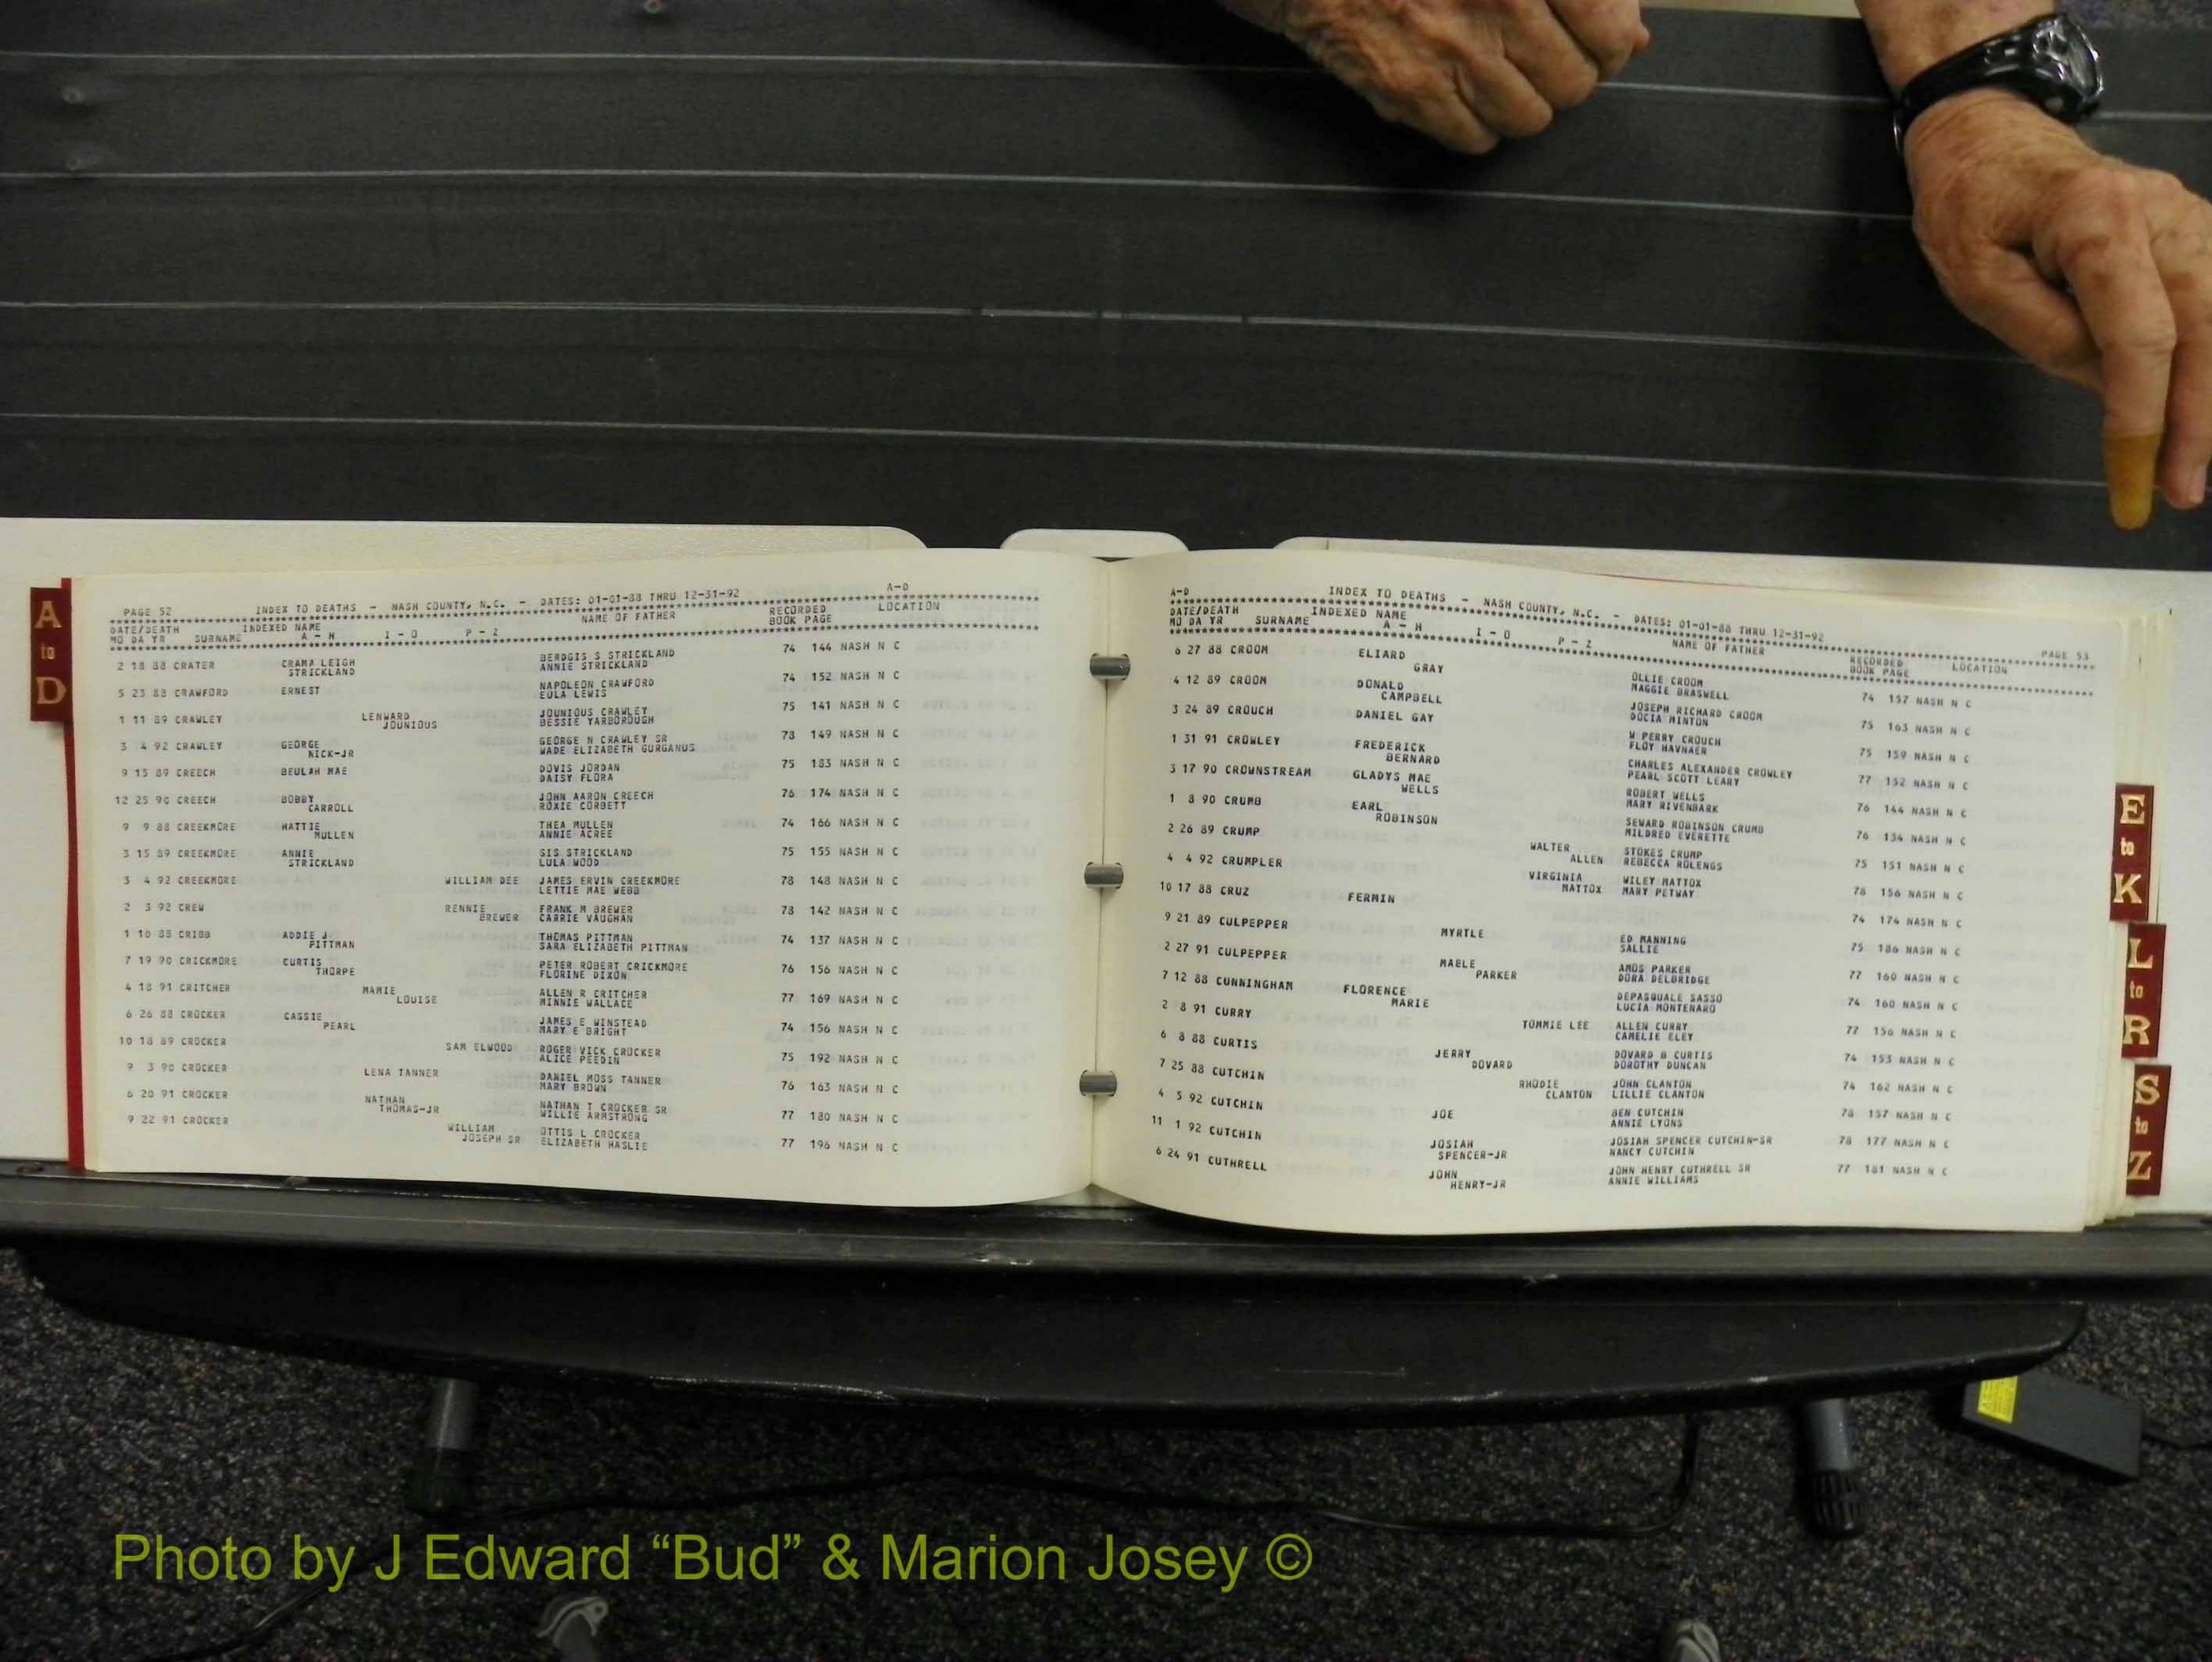 A
to
D
PAGE 52 INDEX TO DEATHS - NASH COUNTY, N.C. - DATES: 01-01-88 THRU 12-31-92 A-D
DATE/DEATH INDEXED NAME NAME OF FATHER RECORDED LOCATION
MO DA YR SURNAME A - H I - O P - Z BOOK PAGE
2 18 88 CRATER CRAMA LEIGH BERDGIS S STRICKLAND 74 144 NASH N C
STRICKLAND ANNIE STRICKLAND
5 23 88 CRAWFORD ERNEST NAPOLEON CRAWFORD 74 152 NASH N C
EULA LEWIS
1 11 89 CRAWLEY LENWARD JOUNIOUS CRAWLEY 75 141 NASH N C
JOUNIOUS BESSIE YARBOROUGH
3 4 92 CRAWLEY GEORGE GEORGE N CRAWLEY SR 78 149 NASH N C
NICK-JR WADE ELIZABETH GURGANUS
9 15 89 CREECH BEULAH MAE DOVIS JORDAN 75 183 NASH N C
DAISY FLORA
12 25 90 CREECH BOBBY JOHN AARON CREECH 76 174 NASH N C
CARROLL ROXIE CORBETT
9 9 88 CREEKMORE HATTIE THEA MULLEN 74 166 NASH N C
MULLEN ANNIE ACREE
3 15 89 CREEKMORE ANNIE SIS STRICKLAND 75 155 NASH N C
STRICKLAND LULA WOOD
3 4 92 CREEKMORE WILLIAM DEE JAMES ERVIN CREEKMORE 78 148 NASH N C
LETTIE MAE WEBB
2 3 92 CREW RENNIE FRANK M BREWER 78 142 NASH N C
BREWER CARRIE VAUGHAN
1 10 88 CRIBB ADDIE J THOMAS PITTMAN 74 137 NASH N C
PITTMAN SARA ELIZABETH PITTMAN
7 19 90 CRICKMORE CURTIS PETER ROBERT CRICKMORE 76 156 NASH N C
THORPE FLORINE DIXON
4 18 91 CRITCHER MAMIE ALLEN R CRITCHER 77 169 NASH N C
LOUISE MINNIE WALLACE
6 26 88 CROCKER CASSIE JAMES E WINSTEAD 74 156 NASH N C
PEARL MARY E BRIGHT
10 18 89 CROCKER SAM ELWOOD ROGER VICK CROCKER 75 192 NASH N C
ALICE PEEDIN
9 3 90 CROCKER LENA TANNER DANIEL MOSS TANNER 76 163 NASH N C
MARY BROWN
6 20 91 CROCKER NATHAN NATHAN T CROCKER SR 77 180 NASH N C
THOMAS-JR WILLIE ARMSTRONG
9 22 91 CROCKER WILLIAM OTTIS L CROCKER 77 196 NASH N C
JOSEPH SR ELIZABETH HASLIE
A-D INDEX TO DEATHS - NASH COUNTY, N.C. - DATES: 01-01-88 THRU 12-31-92 PAGE 53
DATE/DEATH INDEXED NAME NAME OF FATHER RECORDED LOCATION
MO DA YR SURNAME A - H I - O P - Z BOOK PAGE
6 27 88 CROOM ELIARD OLLIE CROOM 74 157 NASH N C
GRAY MAGGIE BRASWELL
4 12 89 CROOM DONALD JOSEPH RICHARD CROOM 75 163 NASH N C
CAMPBELL DOCIA MINTON
3 24 89 CROUCH DANIEL GAY W PERRY CROUCH 75 159 NASH N C
FLOY HAVNAER
1 31 91 CROWLEY FREDERICK CHARLES ALEXANDER CROWLEY 77 152 NASH N C
BERNARD PEARL SCOTT LEARY
3 17 90 CROWNSTREAM GLADYS MAE ROBERT WELLS 76 144 NASH N C
WELLS MARY RIVENBARK
1 8 90 CRUMB EARL SEWARD ROBINSON CRUMB 76 134 NASH N C
ROBINSON MILDRED EVERETTE
2 26 89 CRUMP WALTER STOKES CRUMP 75 151 NASH N C
ALLEN REBECCA ROLENGS
4 4 92 CRUMPLER VIRGINIA WILEY MATTOX 78 156 NASH N C
MATTOX MARY PETWAY
10 17 88 CRUZ FERMIN 74 174 NASH N C
9 21 89 CULPEPPER MYRTLE ED MANNING 75 186 NASH N C
SALLIE
2 27 91 CULPEPPER MABLE AMOS PARKER 77 160 NASH N C
PARKER DORA DELBRIDGE
7 12 88 CUNNINGHAM FLORENCE DEPASQUALE SASSO 74 160 NASH N C
MARIE LUCIA MONTENARO
2 8 91 CURRY TOMMIE LEE ALLEN CURRY 77 156 NASH N C
CAMELIE ELEY
6 8 88 CURTIS JERRY DOVARD B CURTIS 74 153 NASH N C
DOVARD DOROTHY DUNCAN
7 25 88 CUTCHIN RHODIE JOHN CLANTON 74 162 NASH N C
CLANTON LILLIE CLANTON
4 5 92 CUTCHIN JOE BEN CUTCHIN 78 157 NASH N C
ANNIE LYONS
11 1 92 CUTCHIN JOSIAH JOSIAH SPENCER CUTCHIN-SR 78 177 NASH N C
SPENCER-JR NANCY CUTCHIN
6 24 91 CUTHRELL JOHN JOHN HENRY CUTHRELL SR 77 181 NASH N C
HENRY-JR ANNIE WILLIAMS
E
to
K
L
to
R
S
to
Z
Photo by J Edward “Bud” & Marion Josey ©